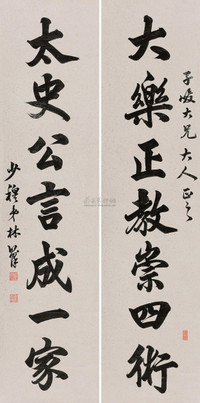 子峻大兄大人正之
大樂正教崇四術
太史公言成一家
少穆弟林